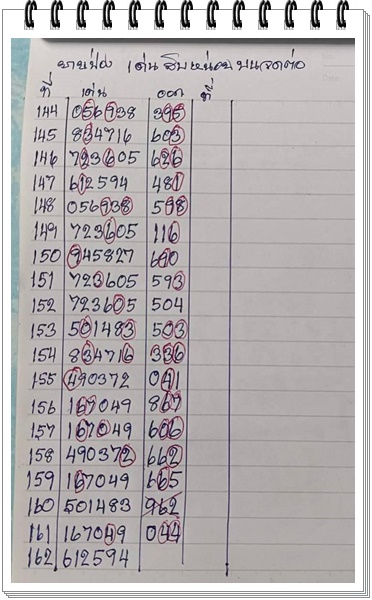 ขายฝุ่ง เด่น สิบหน่วย บนเจดต่อ
ที่ เด่น ออก ที่
144 056938 395
145 834716 603
146 723605 626
147 612594 481
148 056938 598
149 723605 116
150 945827 690
151 723605 593
152 723605 504
153 501483 503
154 834716 336
155 490372 041
156 167049 867
157 167049 606
158 490372 662
159 167049 665
160 501483 962
161 167049 044
162 612594